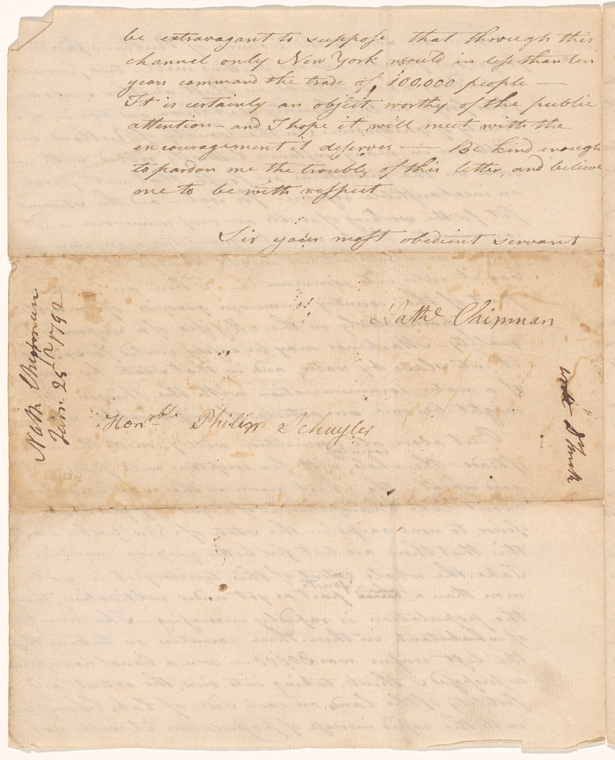 be extravagant to suppose, that through this
channel only New York would in less than ten
years command the trade of 100,000 people —
It is certainly an object worthy of the public
attention — and I hope it will meet with the
encouragement it deserves — Be kind enough
to pardon me the trouble of this letter, and believe
me to be with respect
Sir your most obedient servant
Nathl Chipman
Honble Philip Schuyler
Nath Chipman
25th 1792